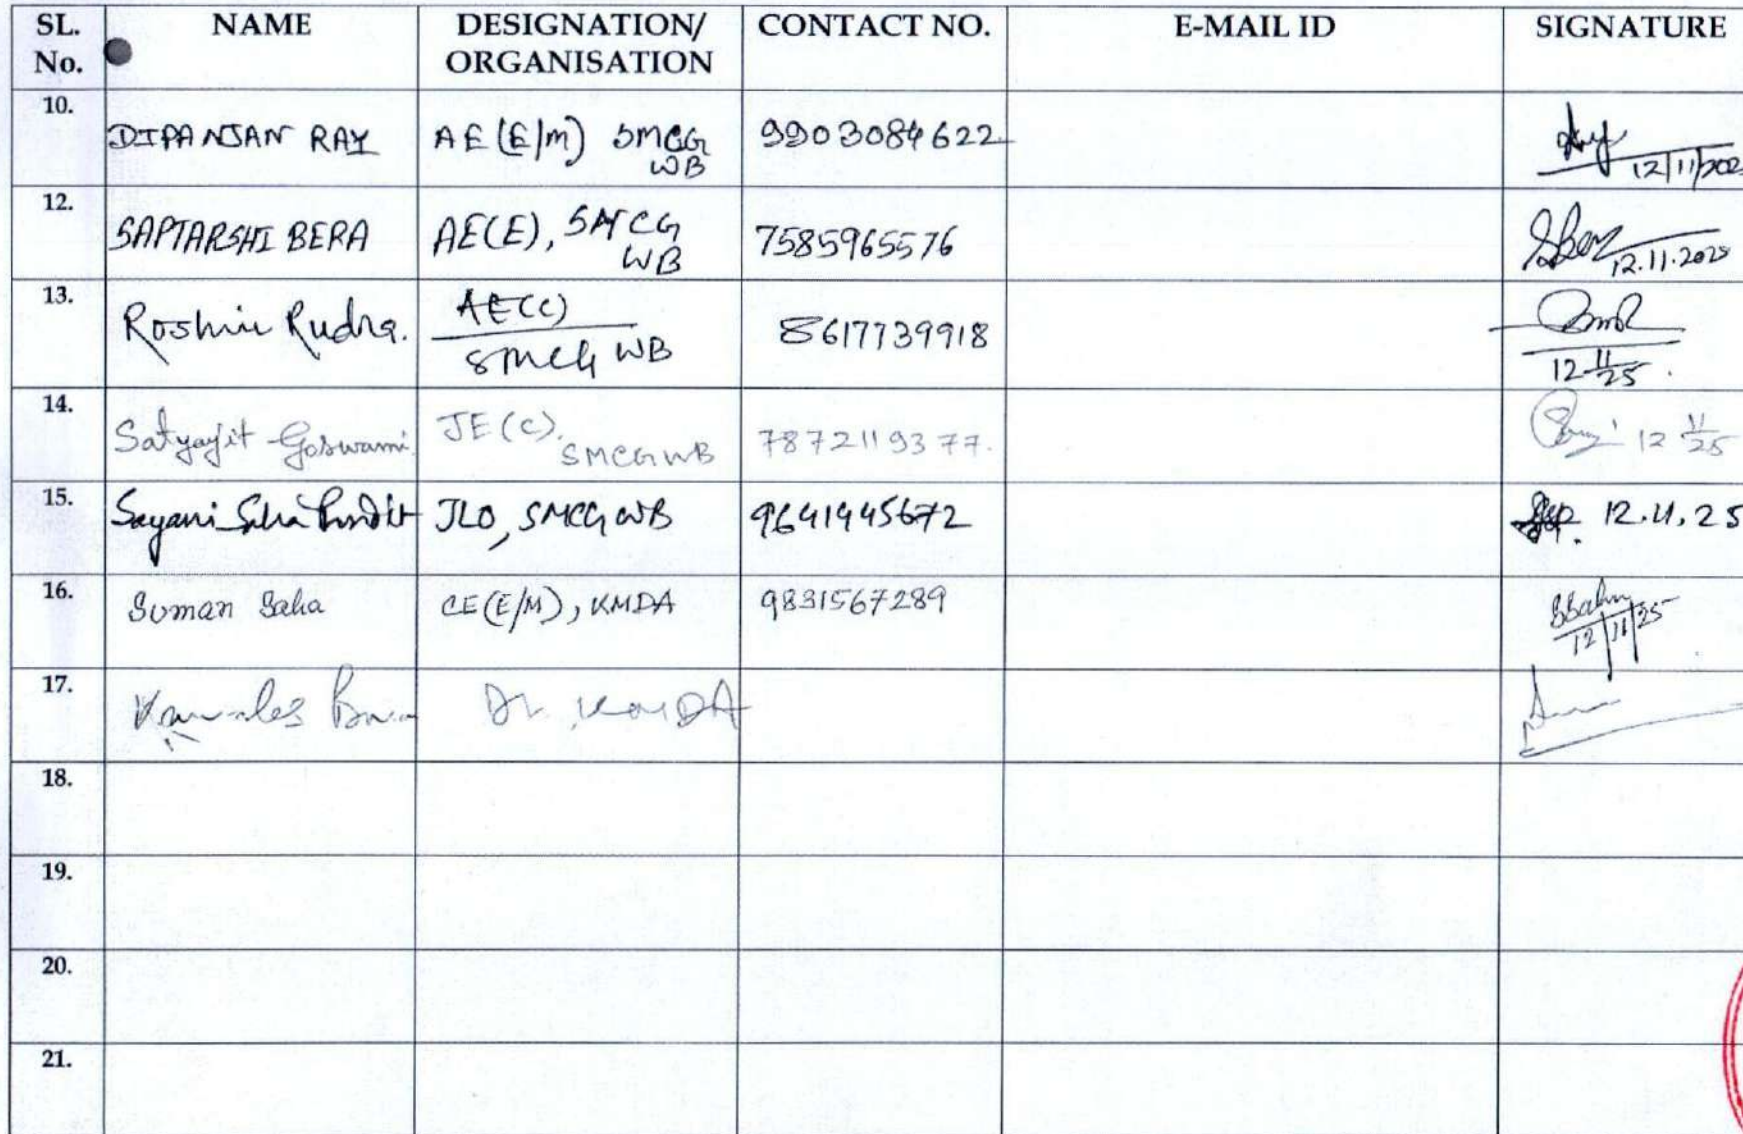 SL. No. NAME DESIGNATION/ ORGANISATION CONTACT NO. E-MAIL ID SIGNATURE
10. DIPANJAN RAY AE (E/M) SMCG WB 9903084622 12/11/202
12. SAPTARSHI BERA AE(E), SMCG WB 7585965576 SBera 12.11.2025
13. Roshni Rudra. AE(C) SMCG WB 8617739918 12 11/25.
14. Satyajit Goswami. JE(C), SMCGWB 7872119377. 12 11/25
15. Sayani Saha Pandit JLO, SMCG WB 9641945672 SSP. 12.11.25
16. Suman Saha CE(E/M), KMDA 9831567289 SSaha 12/11/25
17. KMDA
18.
19.
20.
21.